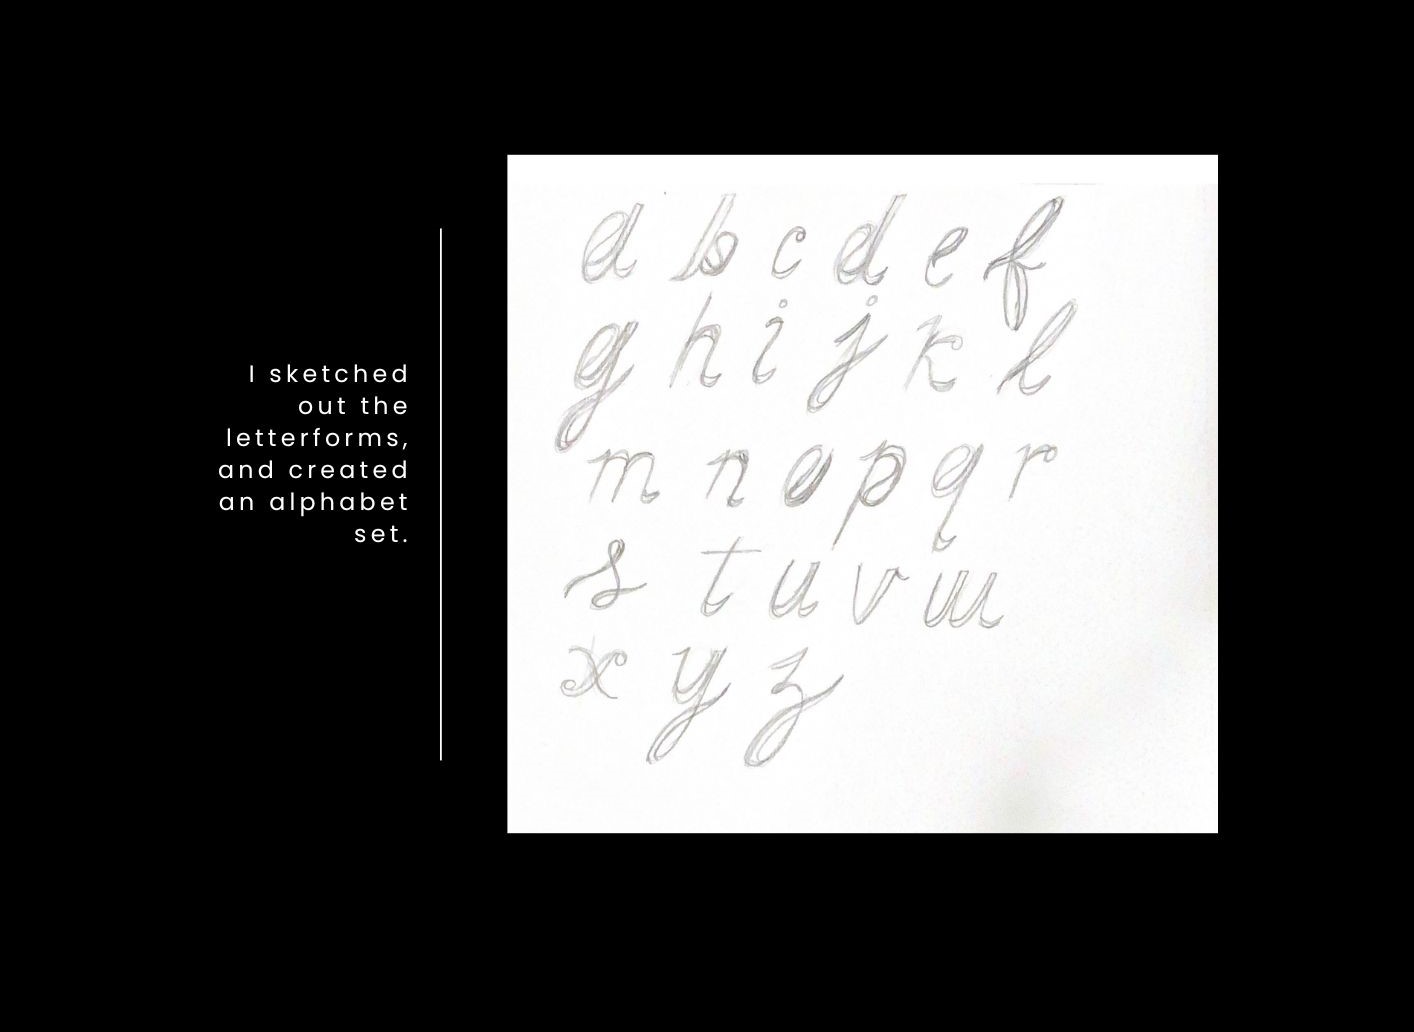 I sketched
out the
letterforms,
and created
an alphabet
set.
a b c d e f
g h i j k l
m n o p q r
s t u v w
x y z